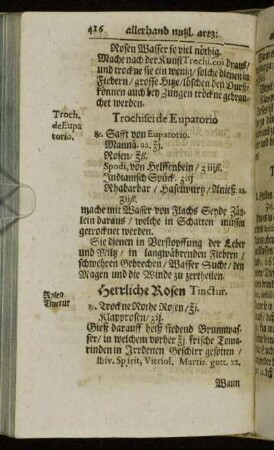 416 allerhand nutzl. artz:
Rosen Wasser so viel nöthig.
Mache nach der Kunst Trochi.coi draus /
und trockne sie ein wenig / solche dienen in
Fiebern / grosse Hitze / löschen den Durst /
können auch bey Zungen tröckne gebrau-
chet werden.
Trochisci de Eupatorio
Troch.
de Eupa
torio.
℞. Safft von Eupatorio.
Manna. aa. ℥j.
Rosen / ℥ß.
Spodi, von Helffenbein / ʒiijß.
Indianisch Spick. ʒiij
Rhabarbar / Haselwurtz / Anieß. aa.
ʒijß.
mache mit Wasser von Flachs Seyde Zält-
lein daraus / welche in Schatten müssen
getrocknet werden.
Sie dienen in Verstopffung der Leber
und Miltz / in langwährenden Fiebern /
schwehren Gebrechen / Wasser Sucht / den
Magen und die Winde zu zertheilen.
Herrliche Rosen Tinctur.
Rosen
Tinctur
℞. Trockne Rothe Rosen / ℥j.
Klapprosen / ʒij.
Gieß darauff heiß siedend Brunnwas-
ser / in welchem vorher ℥j frische Tama-
rinden in Irrdenen Geschirr gesotten /
Spirit, Vitriol. Martis. gott. xx.
Wann